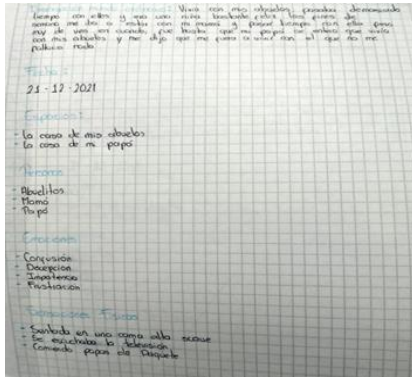 Vivia con mis abuelos, pasaba demasiado
tiempo con ellos y era una niña bastante feliz, los fines de
semana me iba a estar con mi mamá y pasaba tiempo con ella pero
muy de vez en cuando, fue hasta que mi papá se entero que vivia
con mis abuelos y me dijo que me fuera a vivir con el que no me
faltaria nada
Fecha:
21-12-2021
Espacios:
- La casa de mis abuelos
- La casa de mi papá
Personas
- Abuelitos
- Mamá
- Papá
Emociones
- Confusión
- Decepcion
- Impotencia
- Frustracion
Sensaciones Fisicas
- Sentada en una cama alta suave
- Se escuchaba la television
- Comiendo papas de Paquete